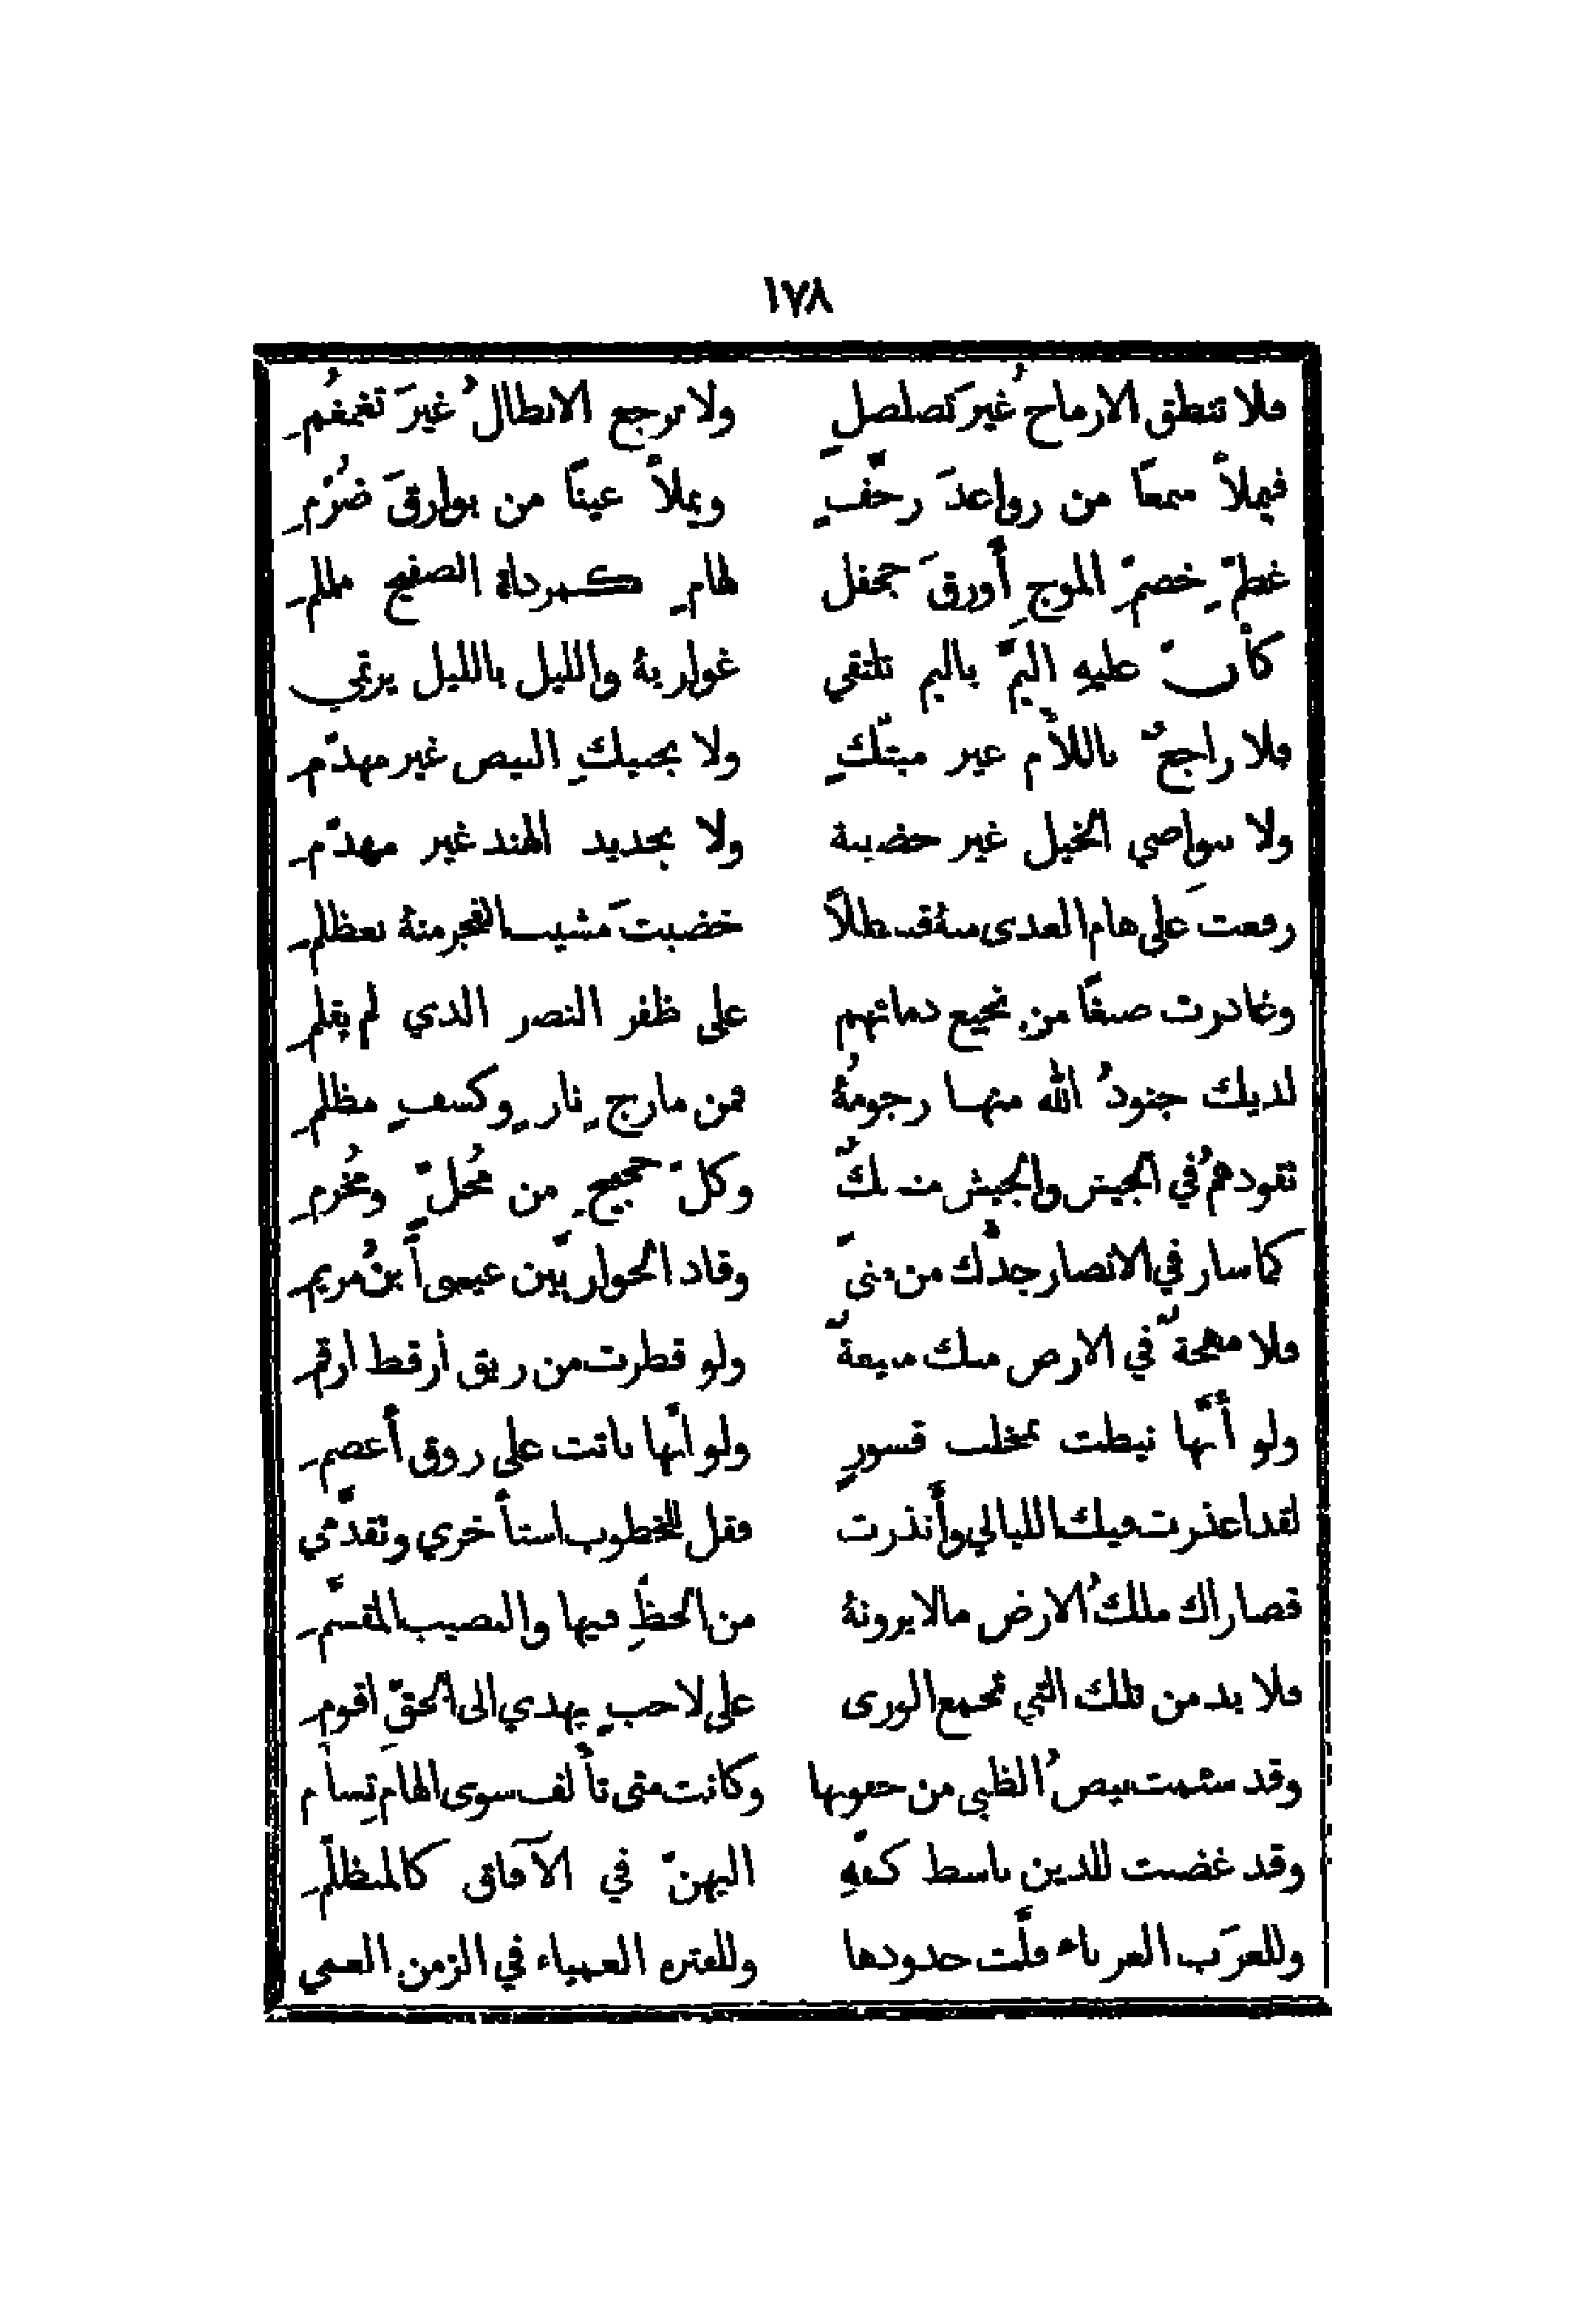 ١٧٨
فلا تنطق الارماحُ غيرَ تصلصلٍ ولا ترجع الابطالُ غيرَ تغمغُمِ
فيملأُ سمعًا من رواعدَ رجَّفٍ ويملأُ عينًا من بوارقَ ضُرَّمِ
غطمٍّ خضمِّ الموجِ أورقَ جحفل لهامٍ كمرداة الصفيح ململمِ
كأنّ عليهِ اليمَّ باليم تلتقي غواربهُ والليل بالليل يرتمي
فلا راجعٌ باللأم غير مبتَّكٍ ولا بحبيك البيض غير مهدّمِ
ولا بنواصي الخيل غير خضيبة ولا بحديد الهند غير مهدّمِ
رفعتَ على هام العدى منهُ قسطلاً خضبتَ مشيب الفجر منهُ بعظلمِ
وغادرت صبغًا من نجيع دمائهم على ظفر النصر الذي لم يقلمِ
لديك جنودُ الله منها رجومُهُ فمن مارجٍ نارٍ وكسفٍ مظلمِ
تقودهمُ في الجيش والجيش منسكٌ وكلّ حجيجٍ من مُحلٍّ ومُحرمِ
كما سار في الانصار جدُّك من منىً وقاد الحواريّين عيسى أبنُ مريمِ
فلا مهجةٌ في الارض منك منيعةٌ ولو قطرت من ريق ارقط ارقمِ
ولو أنَّها نيطت بمخلب قسورٍ ولو أنَّها باتت على روق أعصمِ
لقد اعذرت فيك الليالي وأنذرت فقل للخطوب استأخري وتقدّمي
قصاراك ملكُ الارض ما لا يرونهُ من الحظِّ فيها والنصيب المقسَّمِ
فلا بد من تلك التي تجمع الورى على لاحبٍ يهدي الى الحقّ اقومِ
وقد سئمت بيضُ الظبي من جفونها وكانت متى تألف سوى الهام تسأمِ
وقد غضبت للدين باسط كفّهِ اليهنّ في الآفاق كالمتظلّمِ
وللعرَب العرباء فلَّت حدودها وللفترة العمياء في الزمن العمي